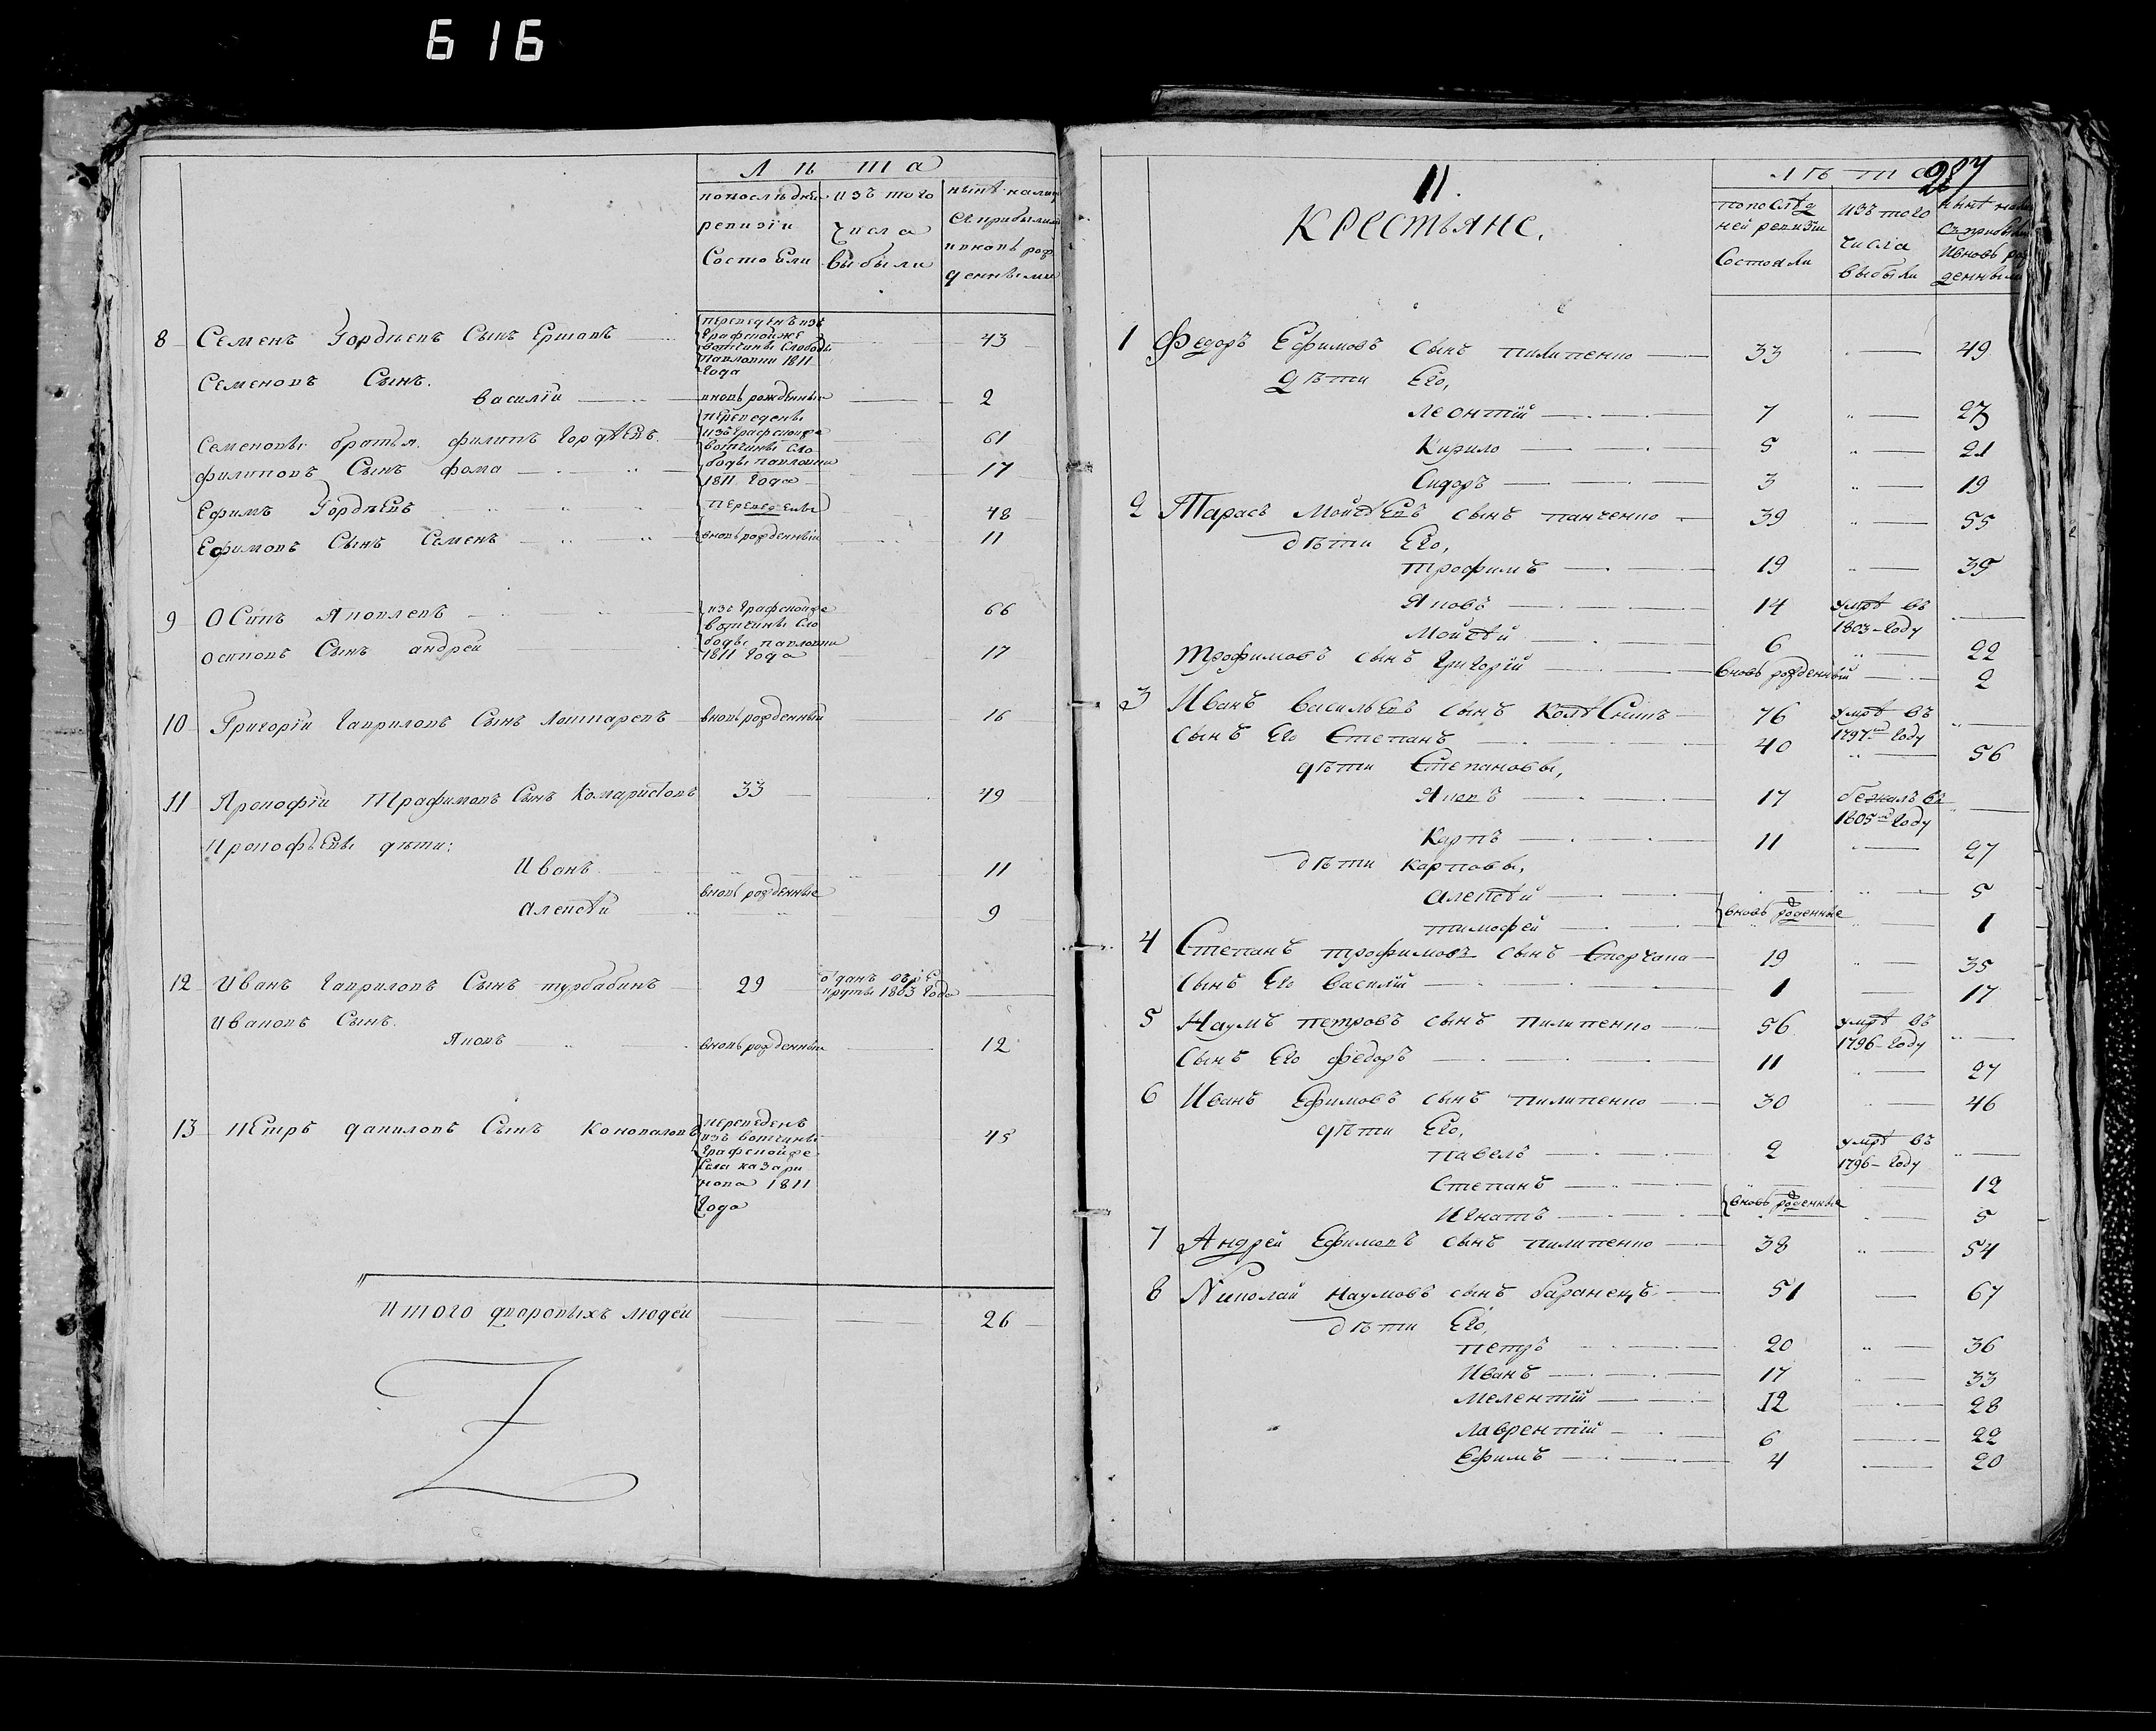 616
Лѣта
попослѣдней ревизіи Состоели
изъ того числа выбыли
ныне налицо съ прибылыми и вновь рожденными
8 Семенъ Гордѣевъ Сынъ Ершовъ переведенъ изъ Графской же вотчины Слободы Павловки 1811 года 43
Семеновъ Сынъ.
василій вновь рожденный 2
Семеновы братья. филипъ Гордѣевъ. переведены изъ Графской же вотчины Сло 61
филиповъ Сынъ фома боды павловки 1811 года 17
Ефимъ Гордѣевъ переведены 48
Ефимовъ Сынъ Семенъ вновь рожденный 11
9 Осипъ Яковлевъ изъ Графской же вотчины Сло 66
осиповъ Сынъ андрей боды павловки 1811 года 17
10 Григорій гавриловъ Сынъ Лошкаревъ вновь рожденный 16
11 Прокофій Трафимовъ Сынъ Комаристовъ 33 49
Прокофьевы дѣти:
Иванъ 11
вновь рожденные
Алексѣй 9
12 Иванъ гавриловъ Сынъ турбабинъ 29 отданъ въ рекруты 1803 года
Ивановъ Сынъ.
Яковъ вновь рожденный 12
13 Петръ даниловъ Сынъ Коноваловъ переведенъ изъ вотчины Графской же Села 1811 года 45
Итого дворовыхъ людей 26
287
11.
Крестьяне.
Лѣта
попослѣдней ревизіи Состояли
изъ того числа выбыли
ныне нали съ прибылы и вновь рожденными
1 Федоръ Ефимовъ сынъ пилипенко 33 49
дѣти Его,
Леонтій 7 23
Кирило 5 21
Сидоръ 3 19
2 Тарасъ Мойсѣевъ сынъ панченко 39 55
дѣти Его,
трофимъ 19 35
Яковъ 14 умрѣ въ 1803 году
Мойсѣй 6 22
трофимовъ сынъ григорій вновь рожденный 2
3 Иванъ васильевъ сынъ Колѣсникъ 76 умрѣ въ 1797 году
сынъ Его Степанъ 40 56
дѣти Степановы,
Яковъ 17 бежалъ въ 1805 году
Карпъ 11 27
дѣти карповы,
алексѣй 5
вновь роженные
тимофей 1
4 Степанъ трофимовъ сынъ Сторчака 19 35
сынъ Его василій 1 17
5 Наумъ петровъ сынъ пилипенко 56 умрѣ въ 1796 году
сынъ Его федоръ 11 27
6 Иванъ Ефимовъ сынъ пилипенко 30 46
дѣти Его,
павелъ 2 умрѣ въ 1796 году
Степанъ 12
вновь роженные
Игнатъ 5
7 Андрей Ефимовъ сынъ пилипенко 38 54
8 Николай Наумовъ сынъ баранецъ 51 67
дѣти Его,
петръ 20 36
Иванъ 17 33
Мелентій 12 28
Лаврентій 6 22
Ефимъ 4 20